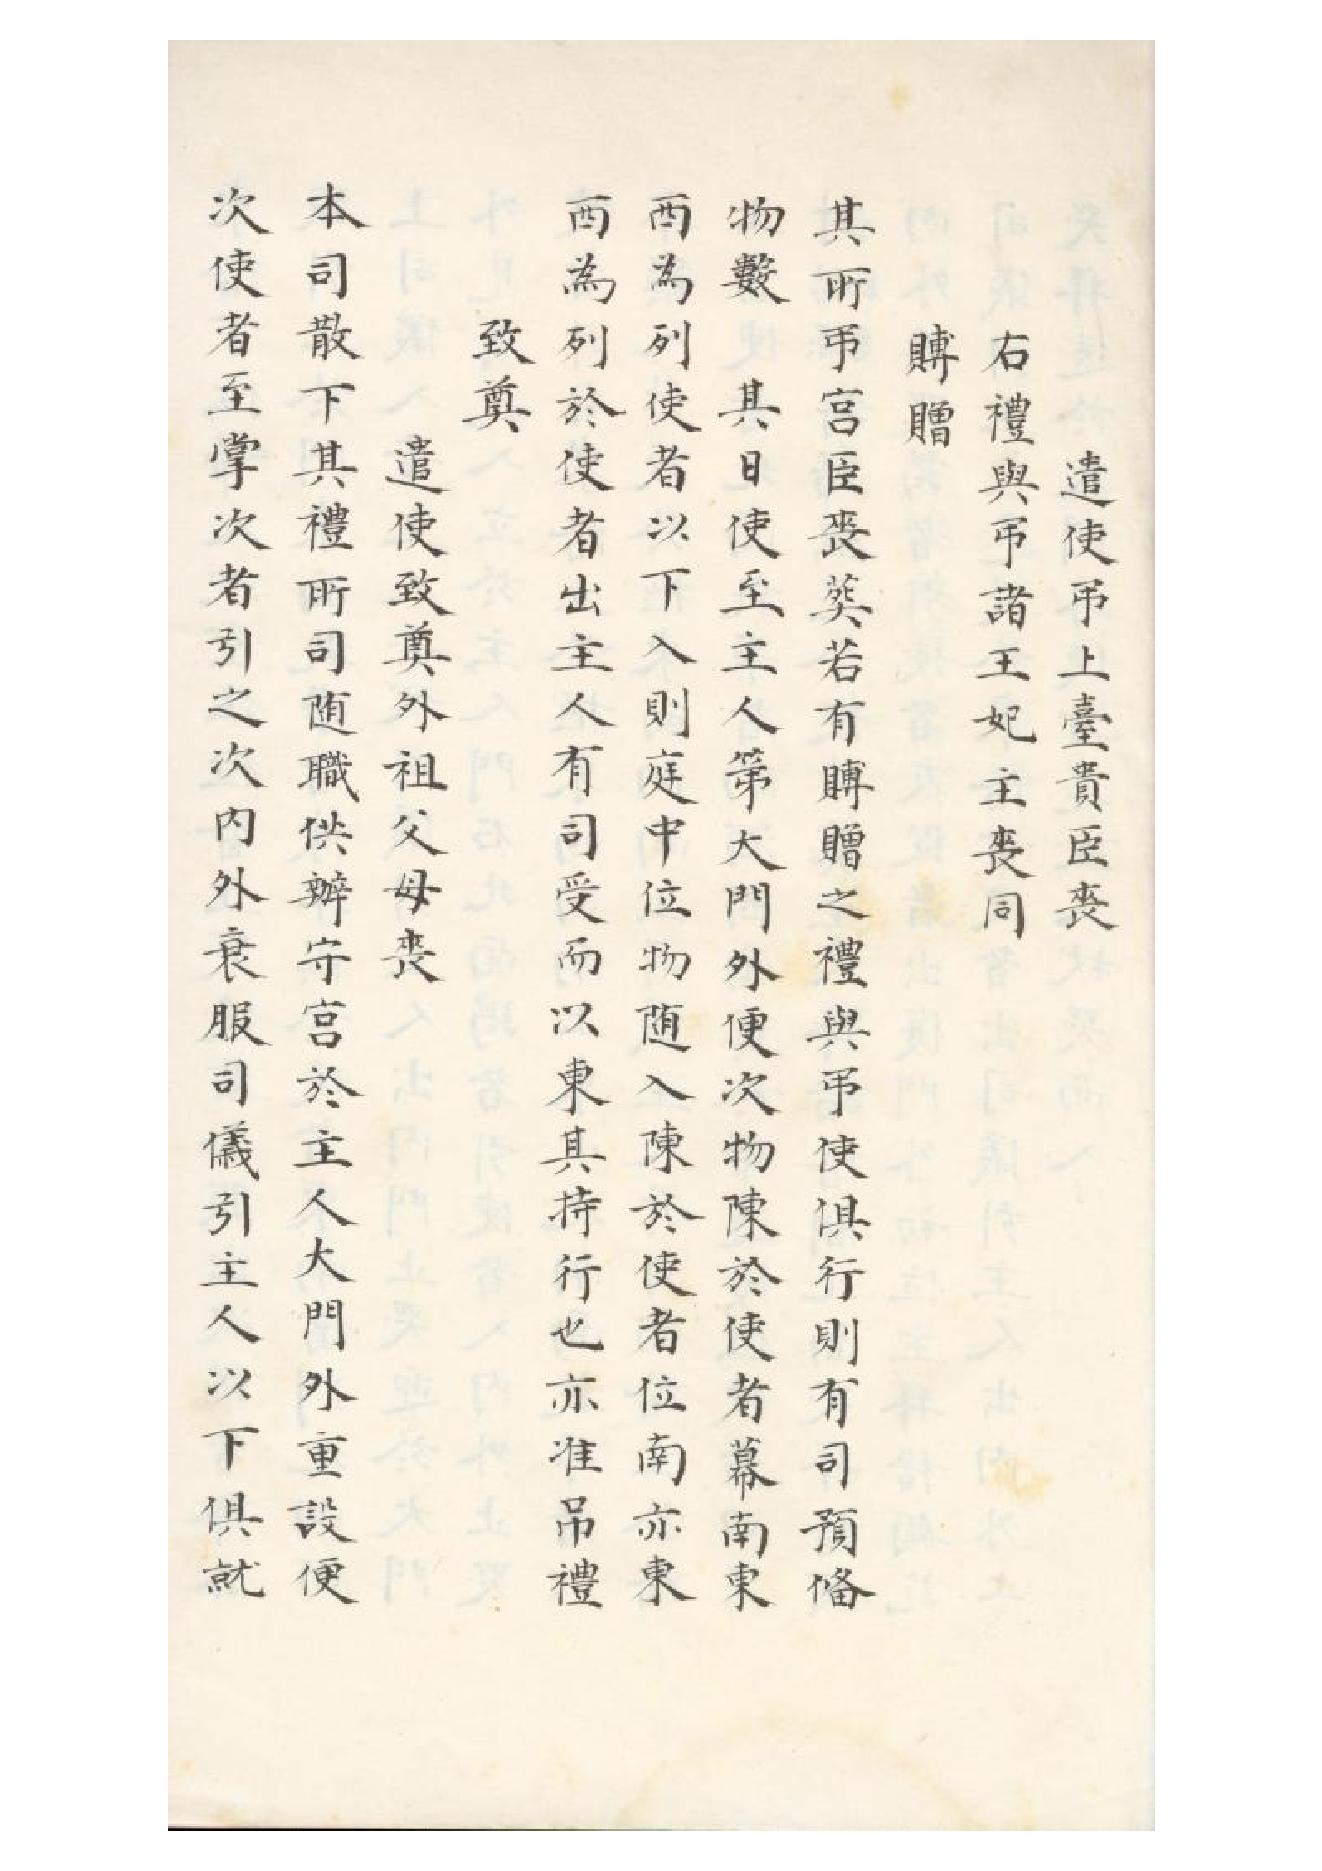 遣使弔上臺貴臣喪
右禮與弔諸王妃主喪同
賻贈
其所弔宮臣喪葬若有賻贈之禮與弔使俱行則有司預俻
物數　其日使至主人第大門外便次物陳於使者幕南東
西為列使者以下入則庭中位物随入陳於使者位南亦東
西為列於使者出主人有司受而以東其持行也亦准吊禮
致奠
遣使致奠外祖父母喪
本司散下其禮所司随職供辦守宮於主人大門外重設便
次使者至掌次者引之次内外衰服司儀引主人以下俱就